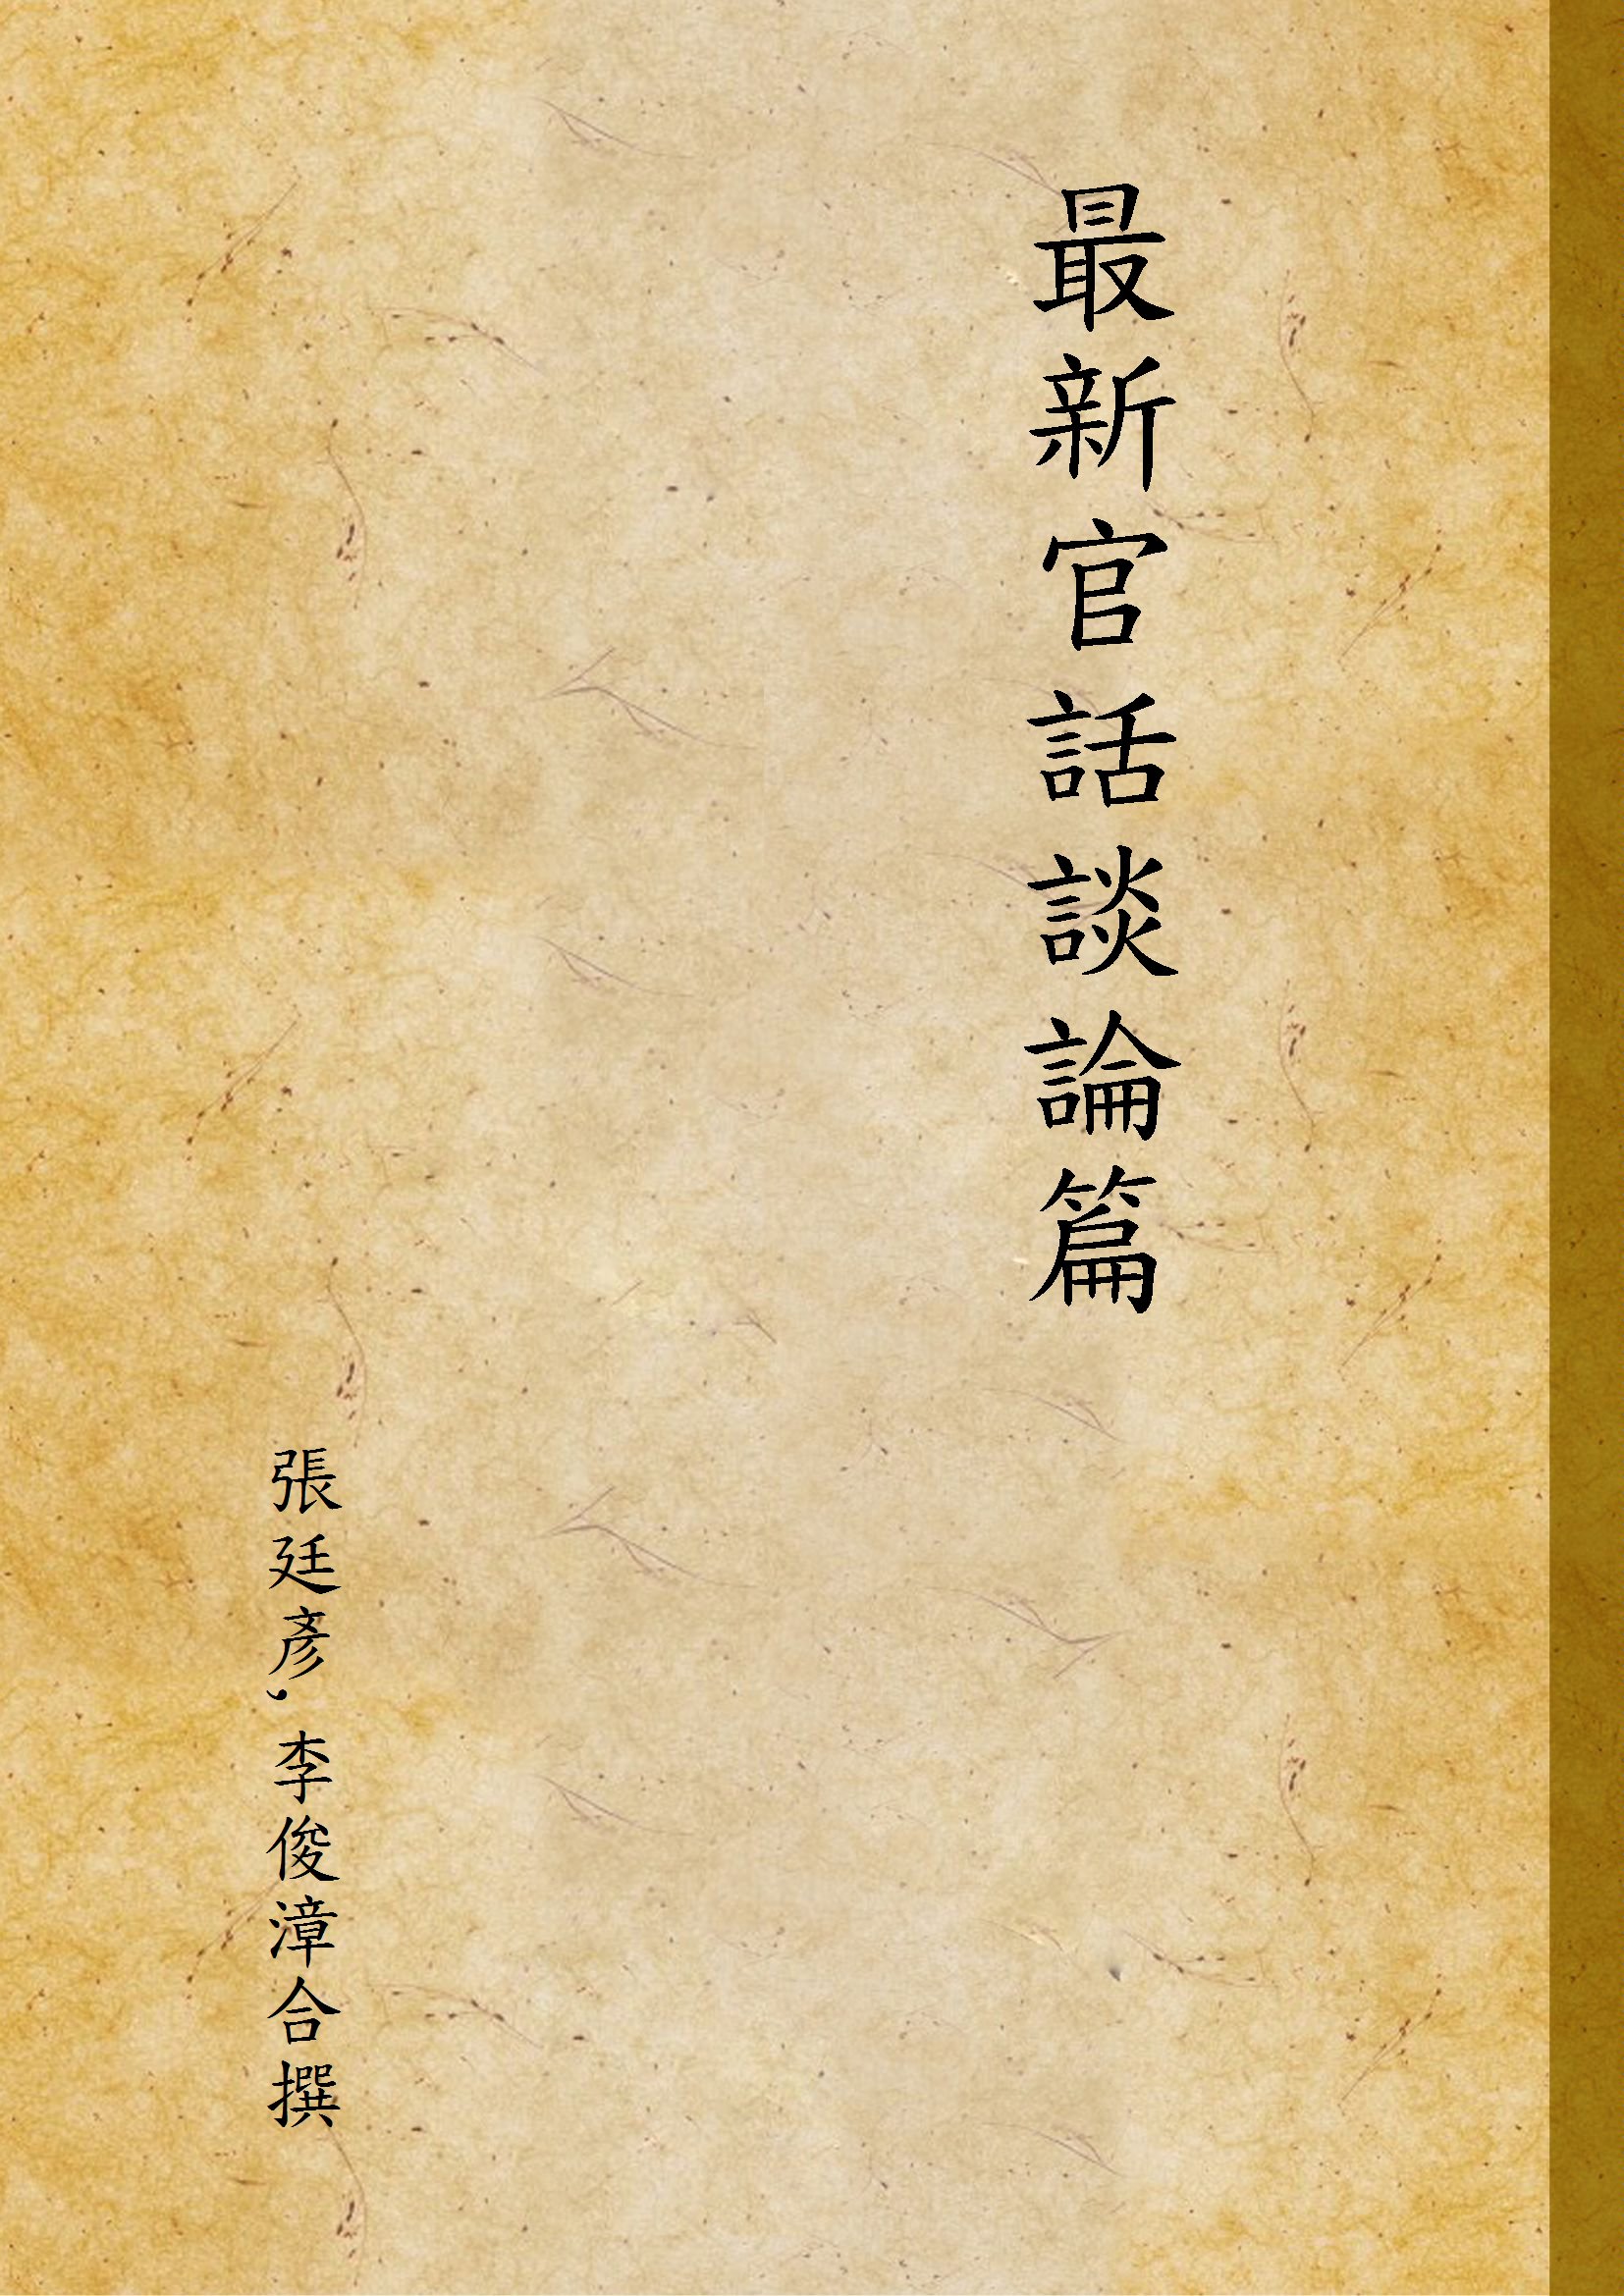 最新官話談論篇
張廷彥, 李俊漳合撰